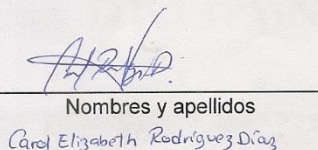 Nombres y apellidos
Carol Elizabeth Rodríguez Díaz